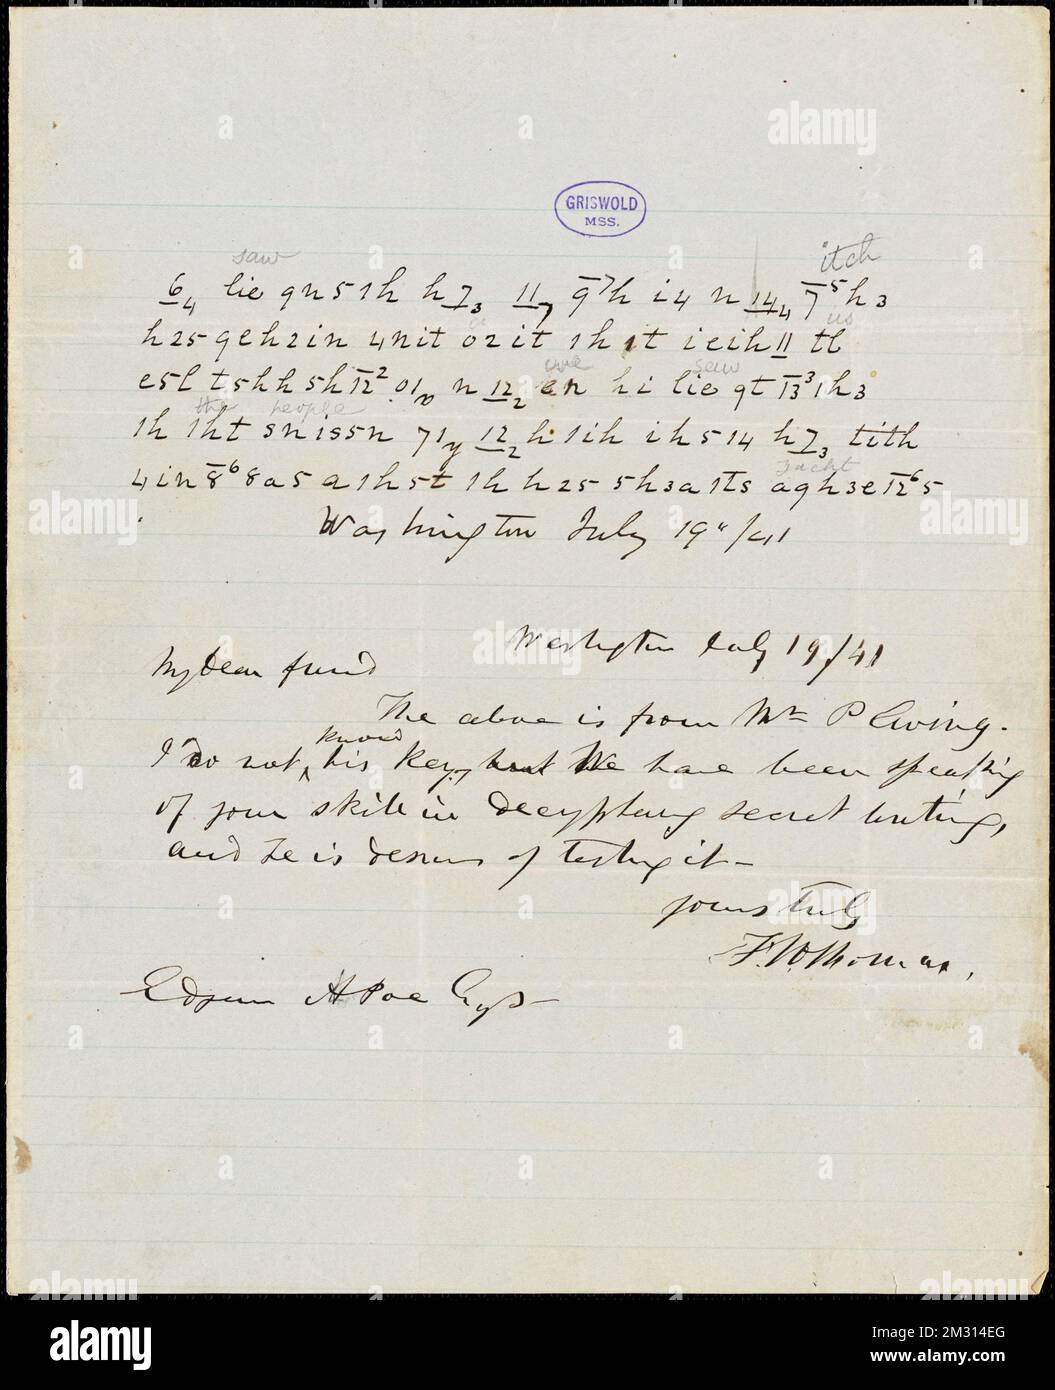 GRISWOLD
MSS.
saw
itch
6/4 lie qn51h h7/3 11/7 97h i4 n 14/4 75h3
us
h25 geh2in 4nit 02it 1h1t ieih11 tl
we saw
e5l t5hh5h12² n12/2 en hi lie qt 13³1h3
the people
1h 1ht snis5n 71y 12/2 h1ih ih514 h7/3 tith
yacht
4in8⁶8a5 a1h5t 1h h25 5h3a1ts aqh3e12⁶5
Washington July 19"/41
Washington July 19/41
My Dear friend
The above is from Mr P Ewing.
know
I do not his key, but We have been speaking
of your skill in decyphering secret writing,
and he is desirous of testing it—
yours truly
F. W. Thomas,
Edgar A Poe Esqr
alamy
a
Image ID: 2M314EG
www.alamy.com